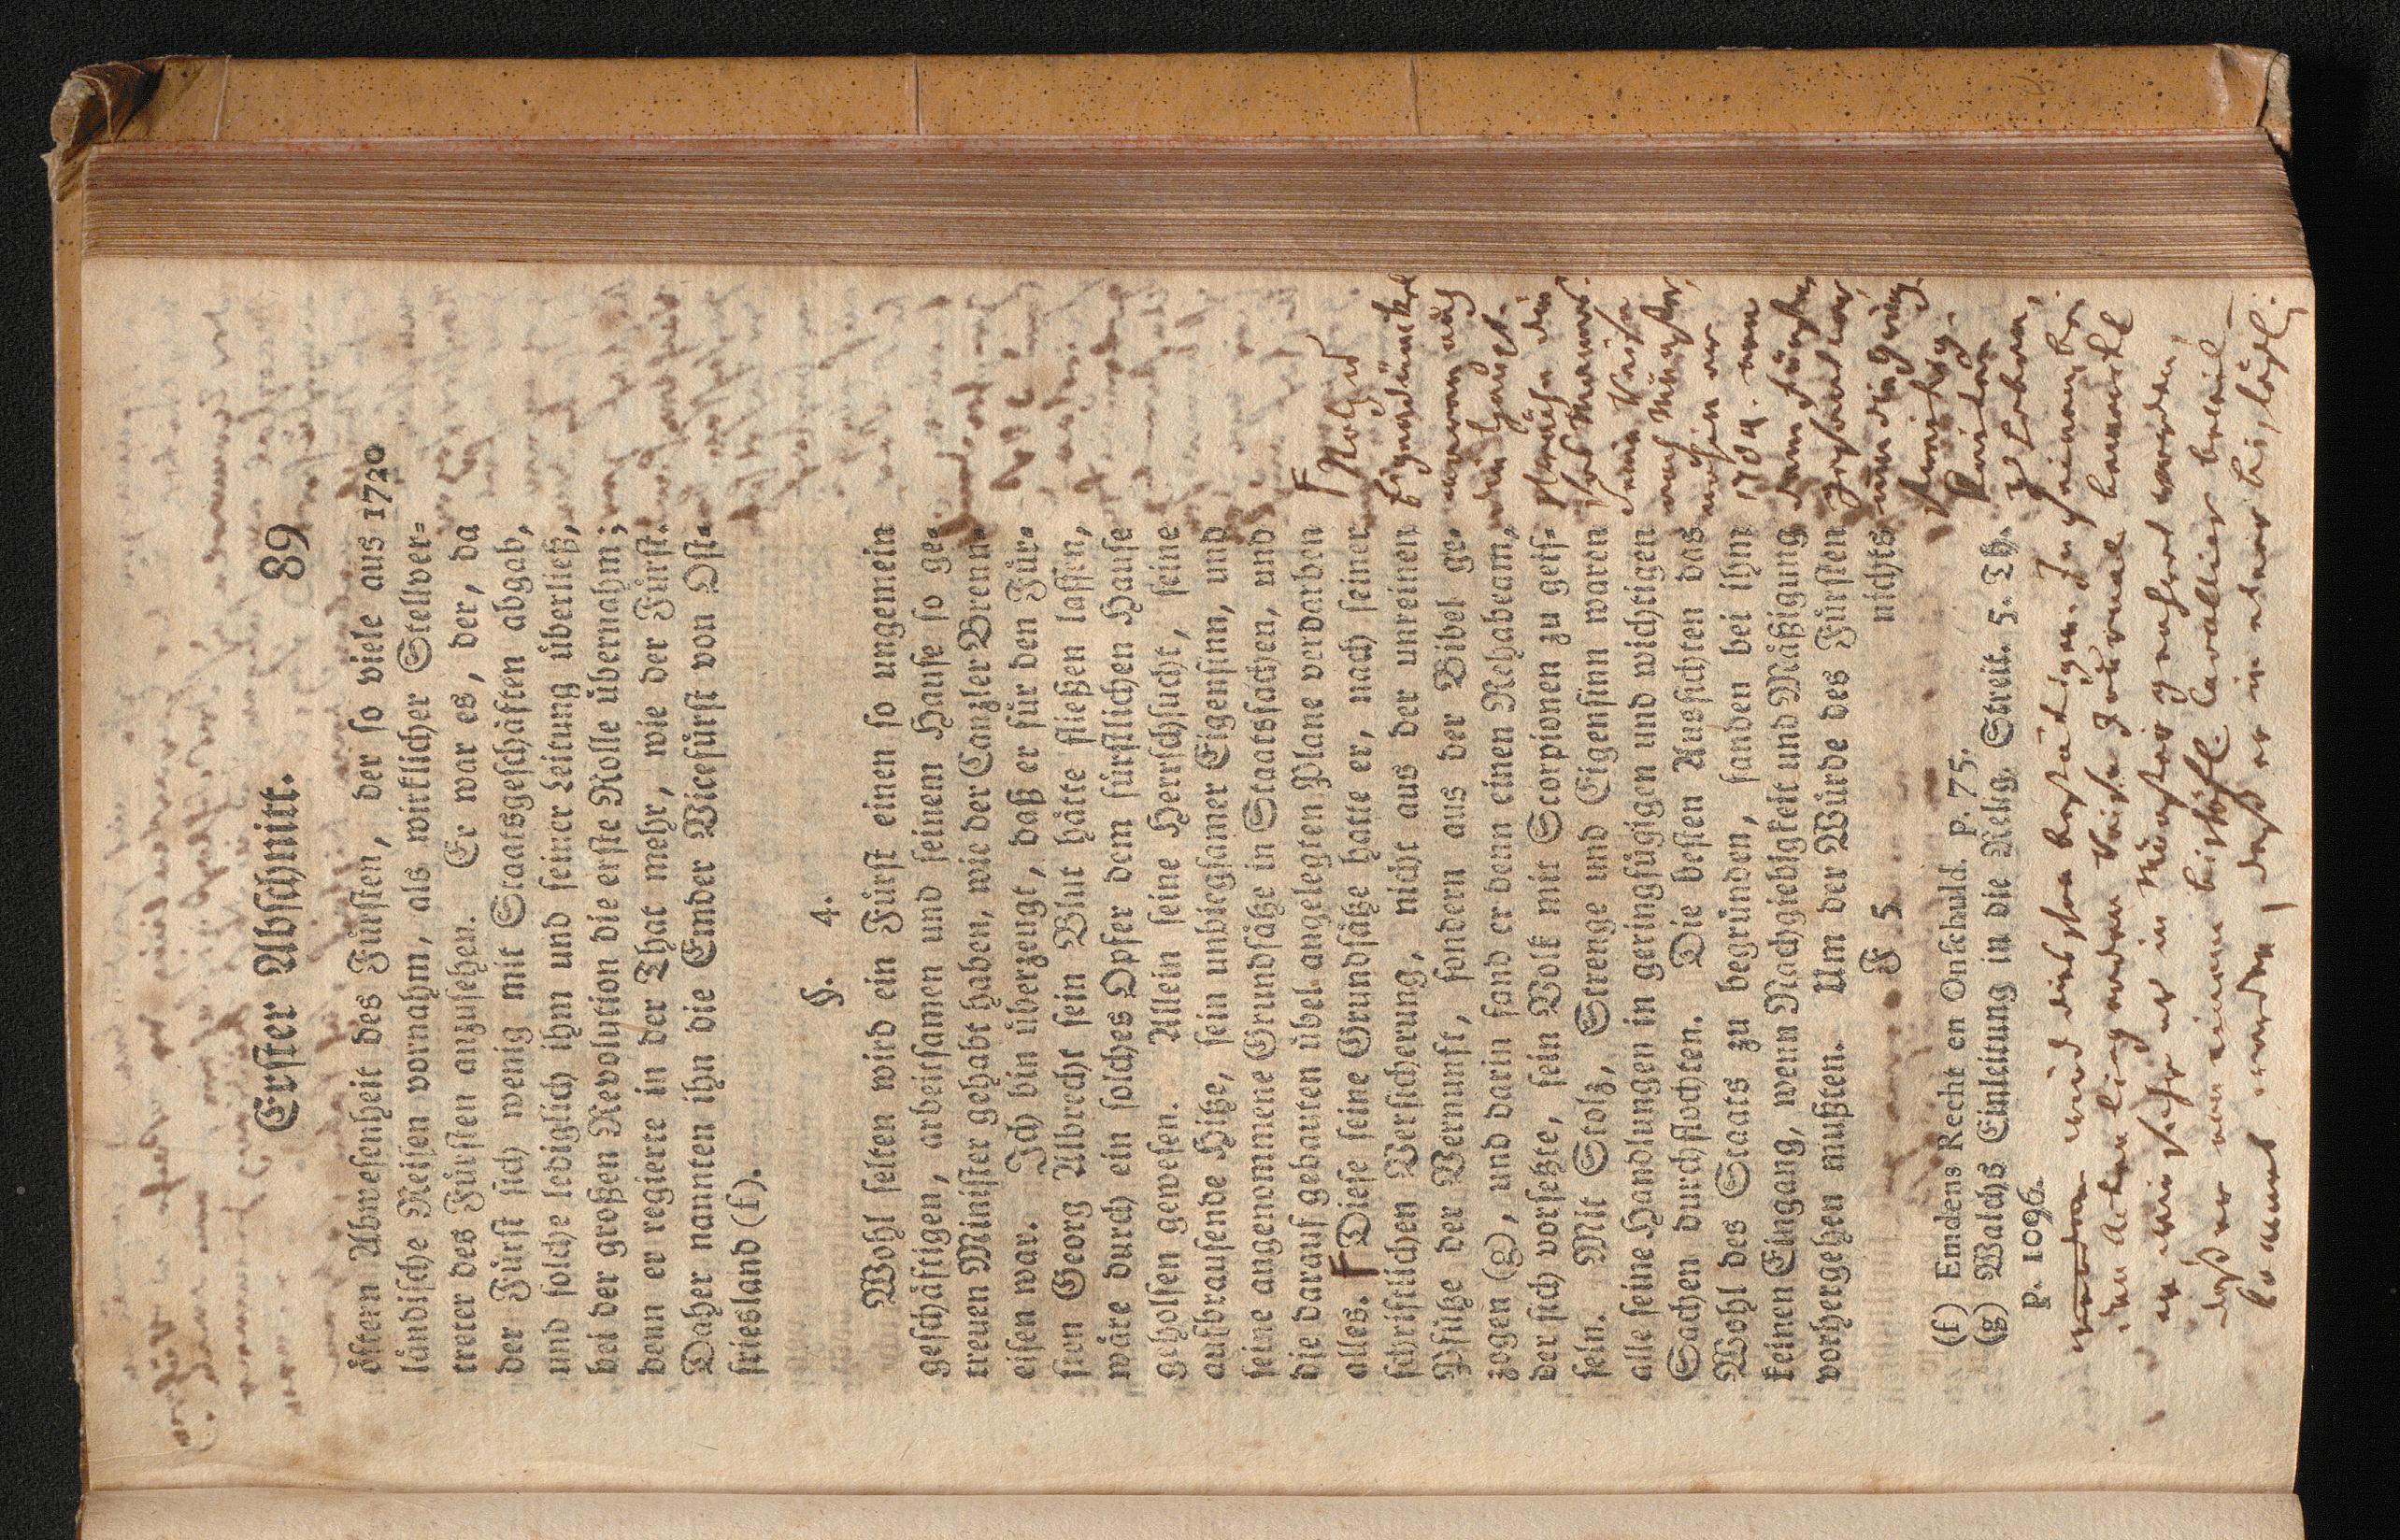 Erster Abschnitt. 89
öftern Abwesenheit des Fürsten, der so viele aus 1720
ländische Reisen vornahm, als wirklicher Stellver-
treter des Fürsten anzusehen. Er war es, der, da
der Fürst sich wenig mit Staatsgeschäften abgab,
und solche lediglich ihm und seiner Leitung überließ,
bei der großen Revolution die erste Rolle übernahm;
denn er regierte in der That mehr, wie der Fürst.
Daher nannten ihn die Emder Vicefürst von Ost-
friesland (f).
§. 4.
Wohl selten wird ein Fürst einen so ungemein
geschäftigen, arbeitsamen und seinem Hause so ge-
treuen Minister gehabt haben, wie der Canzler Brenn-
eisen war. Ich bin überzeugt, daß er für den Für-
sten Georg Albrecht sein Blut hätte fließen lassen,
wäre durch ein solches Opfer dem fürstlichen Hause
geholfen gewesen. Allein seine Herrschsucht, seine
aufbrausende Hitze, sein unbiegsamer Eigensinn, und
seine angenommene Grundsätze in Staatssachen, und
die darauf gebauten übel angelegten Plane verdarben
alles. F Diese seine Grundsätze hatte er, nach seiner
schriftlichen Versicherung, nicht aus der unreinen
Pfütze der Vernunft, sondern aus der Bibel ge-
zogen (g), und darin fand er denn einen Rehabeam,
der sich vorsetzte, sein Volk mit Scorpionen zu geis-
seln. Mit Stolz, Strenge und Eigensinn waren
alle seine Handlungen in geringfügigen und wichtigen
Sachen durchflochten. Die besten Aussichten das
Wohl des Staats zu begründen, fanden bei ihm
keinen Eingang, wenn Nachgiebigkeit und Mäßigung
vorhergehen mußten. Um der Würde des Fürsten
F 5 nichts
(f) Emdens Recht en Onschuld. p. 75.
(g) Walchs Einleitung in die Relig. Streit. 5. Th.
p. 1096.
F Stolz und
Eigendünckel
waren auch
die Haupt-
dieses
Mannes.
seine Reise
nach Münster,
wohin er
1704. von
dem Fürsten
gesandt war,
um die
wird dieses bestätigen. In seinem bei
den Acten liegenden Reise Journal bemerckt
er wie sehr er in Münster geehret worden,
daß er von einem bischöfl. Cavallier
worden, daß er in einer